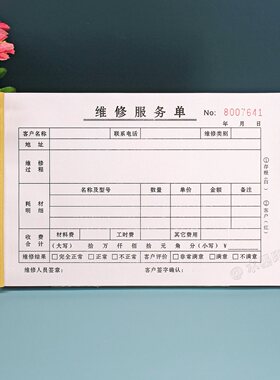 维修服务单 No: 8007641
年 月 日
客户名称 联系电话 维修类别
地址
维修
过程
名称及型号 数量 单价 金额 备注
耗材
明细
收费 材料费 工时费 其它费用
合计 (大写) 拾 万 仟 佰 拾 元 角 分 (小写) ¥
维修结果 □完全正常 □正常 □不正常 客户评价 □非常满意 □满意 □不满意
维修人员签章: 客户签字确认:
①存根(白)
②客户(红)